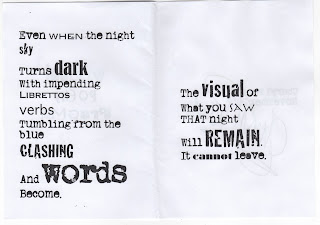 Even WHEN the night
sky
Turns dark
With impending
LIBRETTOS
verbs
Tumbling from the
blue
CLASHING
And words
Become.
The visual of
What you SAW
THAT night
Will REMAIN.
It cannot leave.